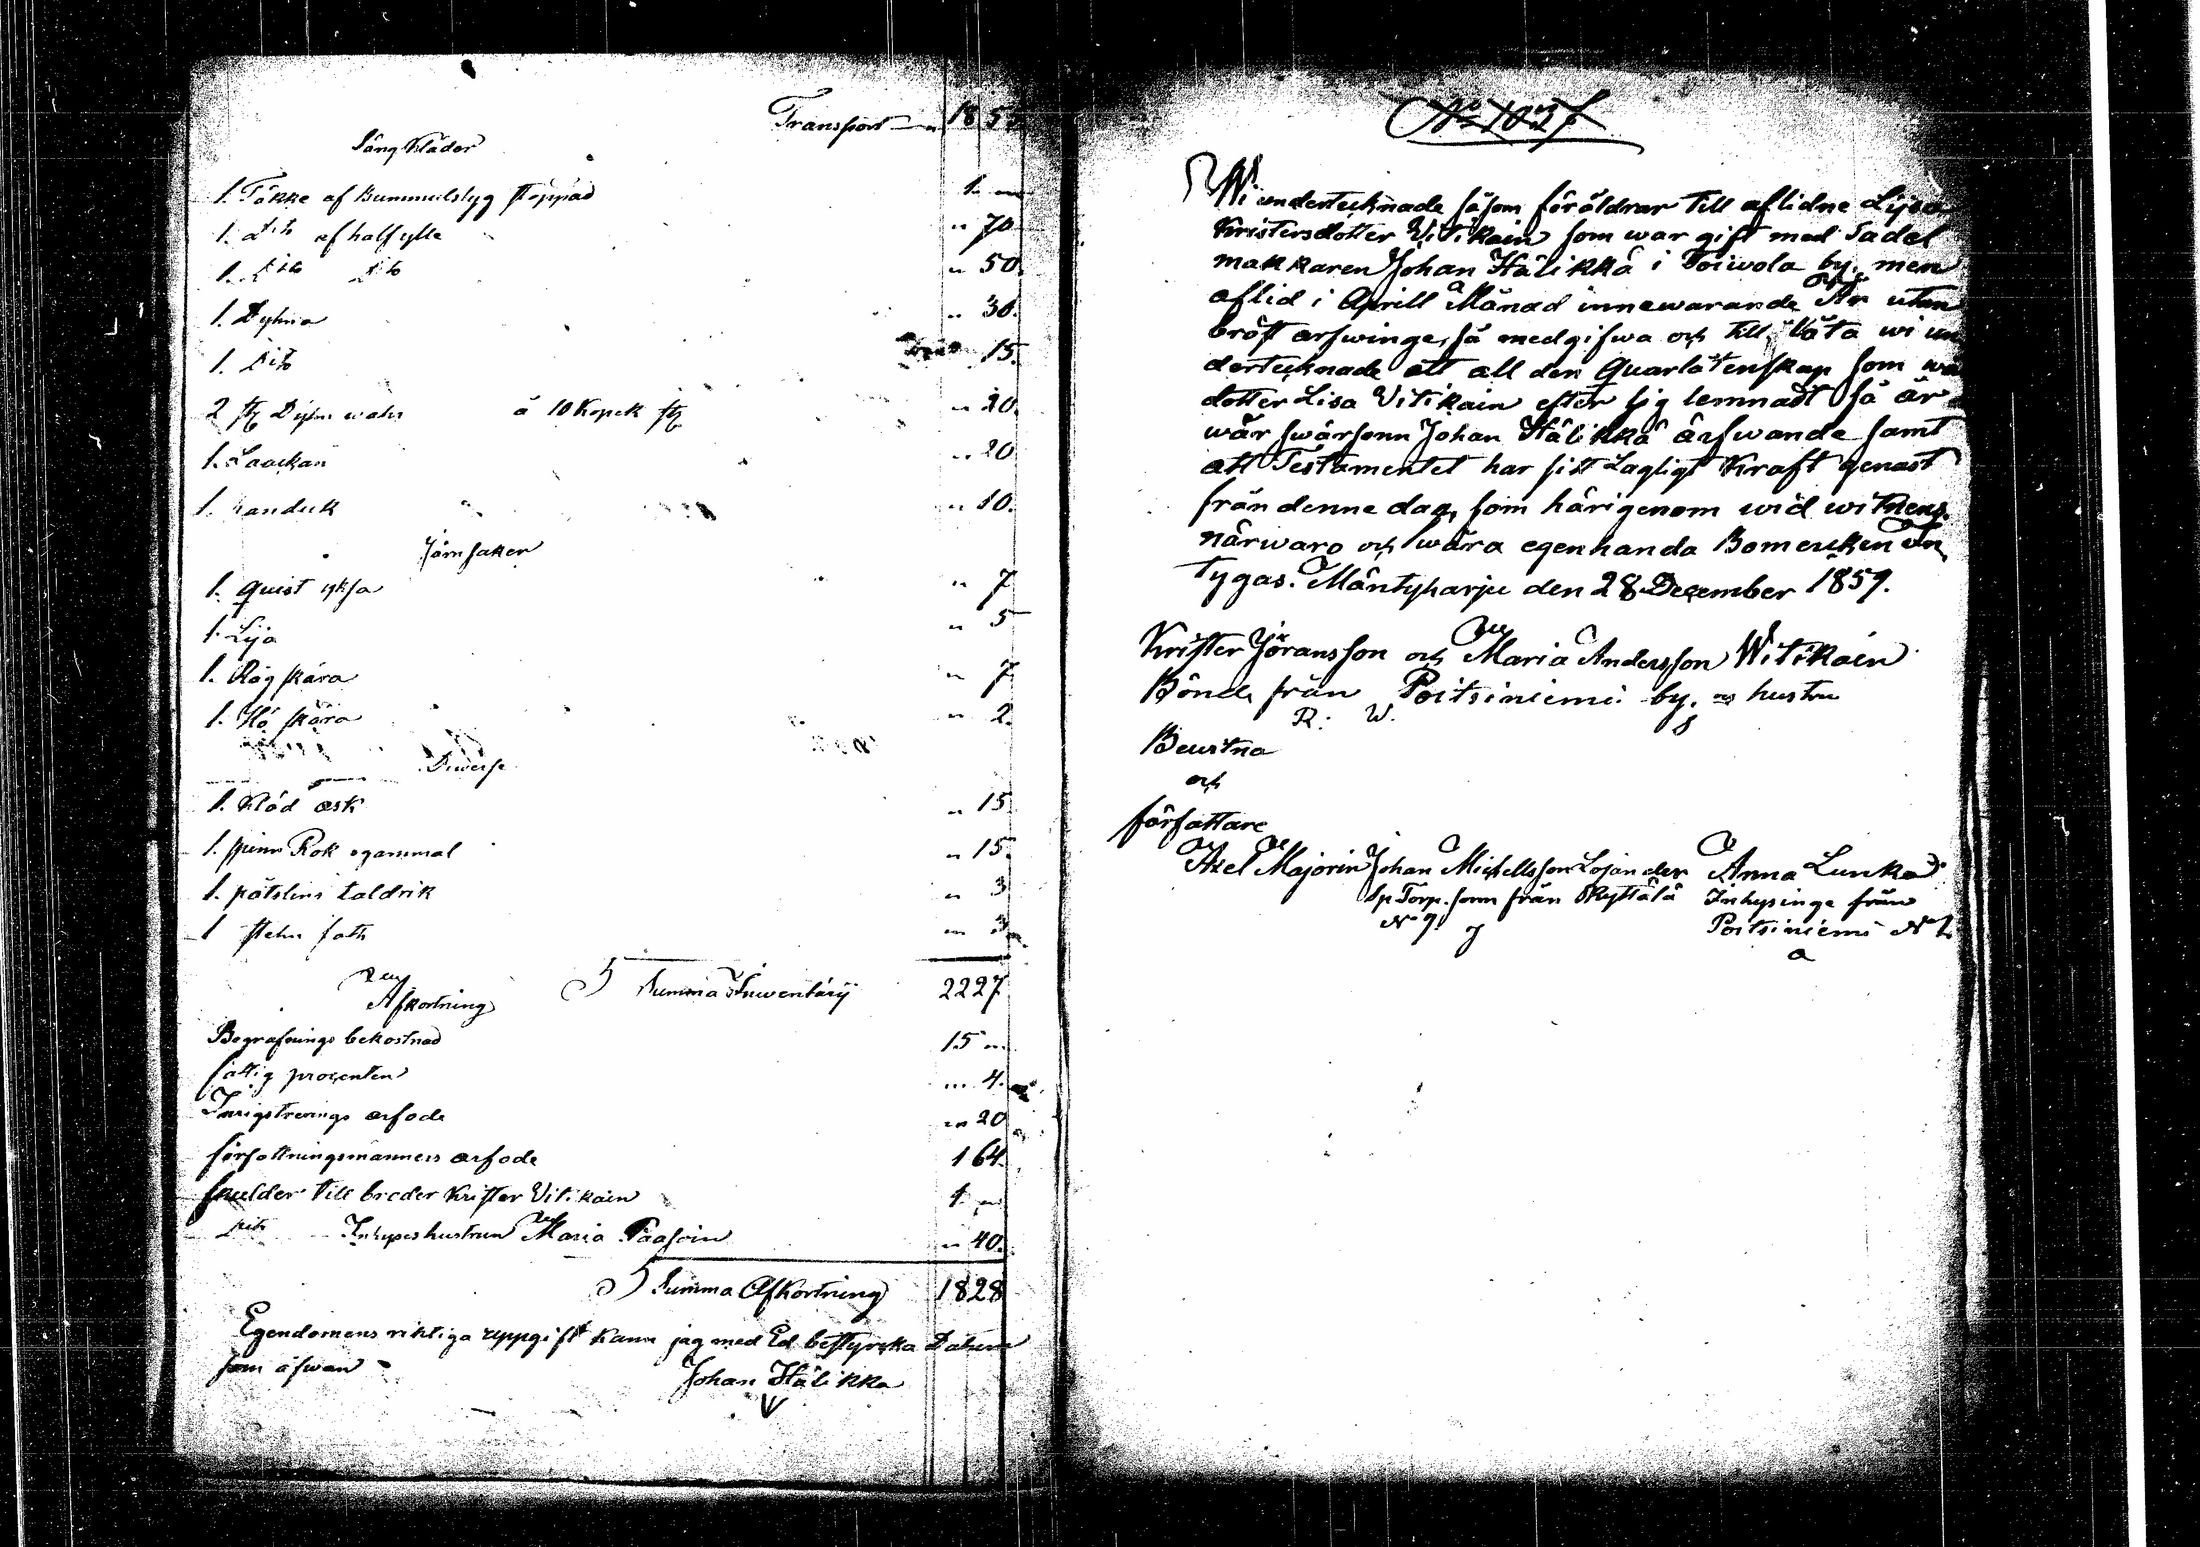 Transport „ 18 5
Sängkläder
1. Täkke af Bummulstyg stoppad 1. „
1. dito af halfylle „ 70
1. dito dito „ 50.
1. Dyhna „ 30.
1. dito 15.
2 st Dyhn warr à 10 Kopek st „ 20.
1. Laackan „ 20
1. handuk „ 10.
Järnsaker
1. quist yksa „ 7
1. Lija „ 5
1. Råg skära „ 7.
1. Hö skära „ 2.
Diverse
1. Kläd ask „ 15
1. spinn Rok ogammal „ 15.
1. påtslins taldrik „ 3
1 stehn fath „ 3
Summa Inventarij 2227
Afkortning
Begrafnings bekostnad 15 „
fattig procenten „ 4.
Inrigstrerings arfode „ 20
författningsmanners arfode 1 64.
skulder till broder Krister Vitikain 1. „
dito Inhyseshustrun Maria Paasoin „ 40.
Summa Afkortning 1828
Egendomens riktiga uppgift kann jag med Ed bestyrcka Datum
som åfwan
Johan Hälikka
No 1037
Wi undertecknade såsom föräldrar till aflidne Lijsa
Kristersdotter Vitikain som war gift med Sadel
makkaren Johan Hälikkä i Toiwola by, men
aflid i Aprill Månad innewarande År utan
bröst arfwinge, så medgifwa och till låta wi un
dertecknade att all den Quarlåtenskap som wår
dotter Lisa Vitikain efter sig lemnadt så är
wår swärsonn Johan Hälikkä ärfwande samt
att Testamentet har sitt Lagligt Kraft genast
från denne dag, som härigenom wid witnens
närwaro och wåra egenhanda Bomercken In
tygas. Mäntyharju den 28 December 1859.
Krister Jöransson och Maria Andersson Witikain
Bönde från Poitsiniemi by. och hustru
R: W.
Beustna
och
författare
Axel Majorin Johan Michellsson Lojander Anna Lunka
Sp Torp. sonn från Kyttälä Inhysinge från
No 7. Poitsiniemi No 2